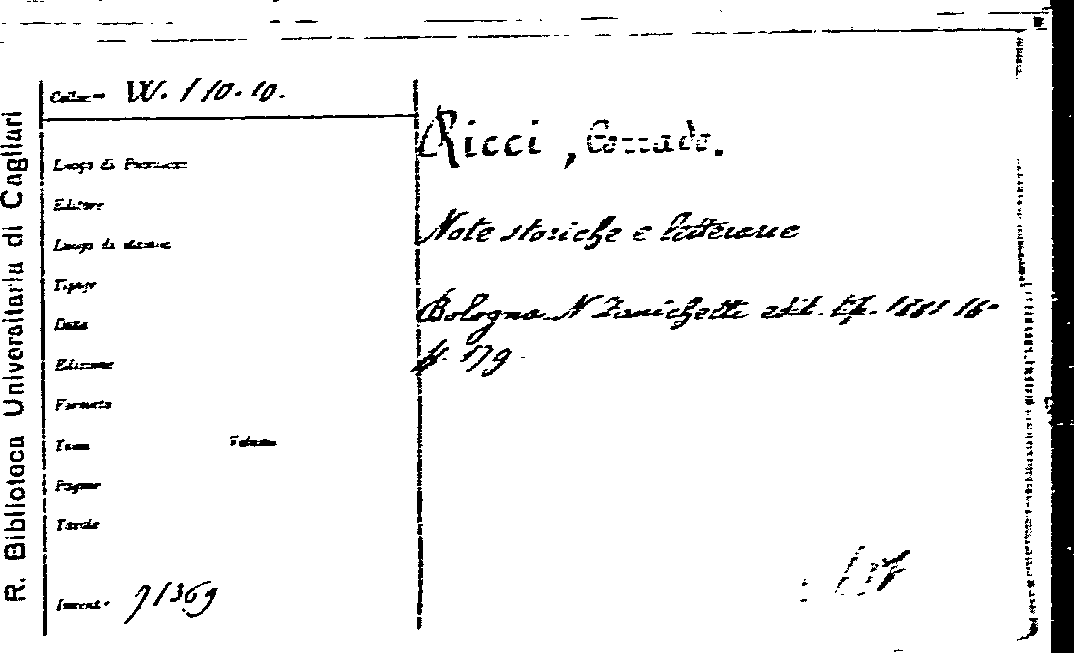 R. Biblioteca Universitaria di Cagliari
Colloc.ne W. 110.10.
Luogo di
Editore
Luogo di stampa
Tipogr.
Data
Edizione
Formato
Tomo Volume
Pagine
Tavole
Invent. 71369
Ricci, Corrado.
Note storiche e letterarie
Bologna N Zanichelli edit. tip. 1881 16.
p. 179.